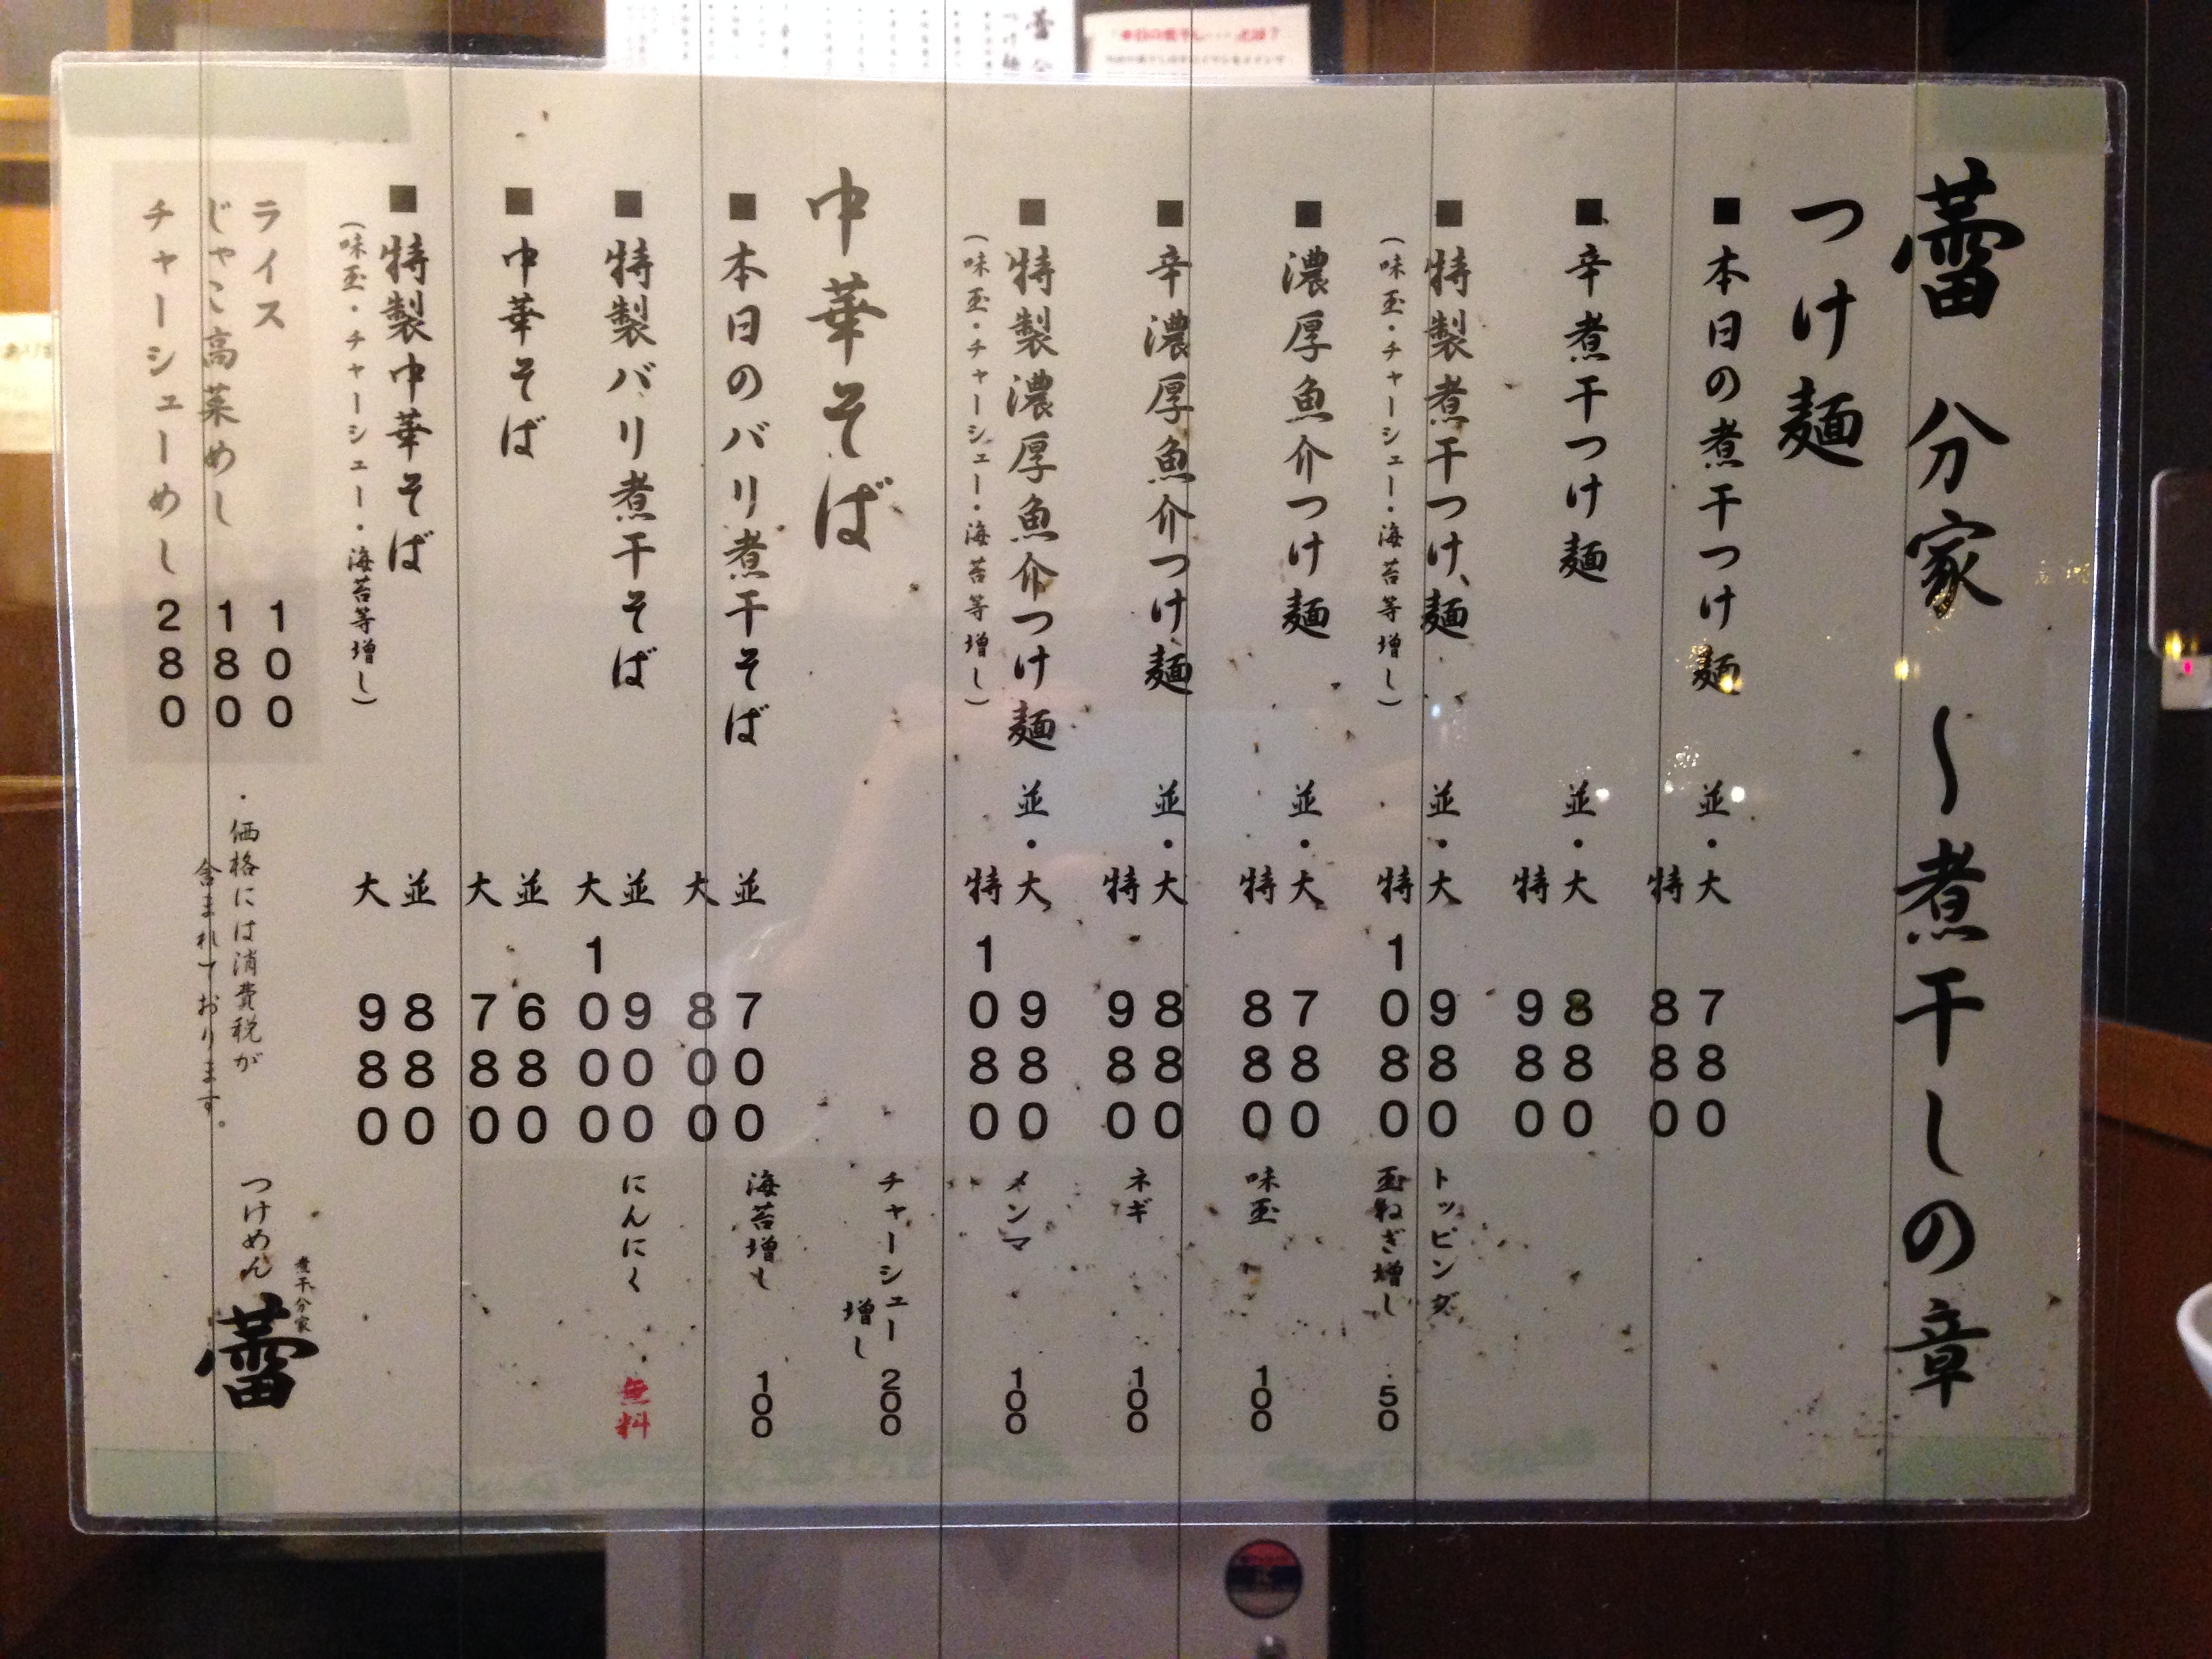 蕾 分家 〜煮干しの章
つけ麺
■本日の煮干つけ麺 並・大 780
特 880
■辛煮干つけ麺 並・大 880
特 980
■特製煮干つけ麺 並・大 980
(味玉・チャーシュー・海苔等増し) 特 1080
■濃厚魚介つけ麺 並・大 780
特 880
■辛濃厚魚介つけ麺 並・大 880
特 980
■特製濃厚魚介つけ麺 並・大 980
(味玉・チャーシュー・海苔等増し) 特 1080
中華そば
■本日のバリ煮干そば 並 700
大 800
■特製バリ煮干そば 並 900
大 1000
■中華そば 並 680
大 780
■特製中華そば 並 880
(味玉・チャーシュー・海苔等増し) 大 980
トッピング
玉ねぎ増し 50
味玉 100
ネギ 100
メンマ 100
チャーシュー増し 200
海苔増し 100
にんにく 無料
ライス 100
じゃこ高菜めし 180
チャーシューめし 280
・価格には消費税が
含まれております。
煮干分家
つけめん 蕾